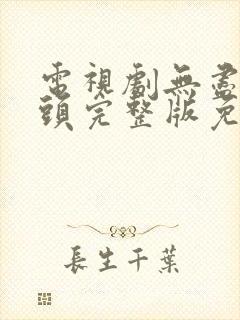 電視劇無盡
頭完整版免
長生千葉